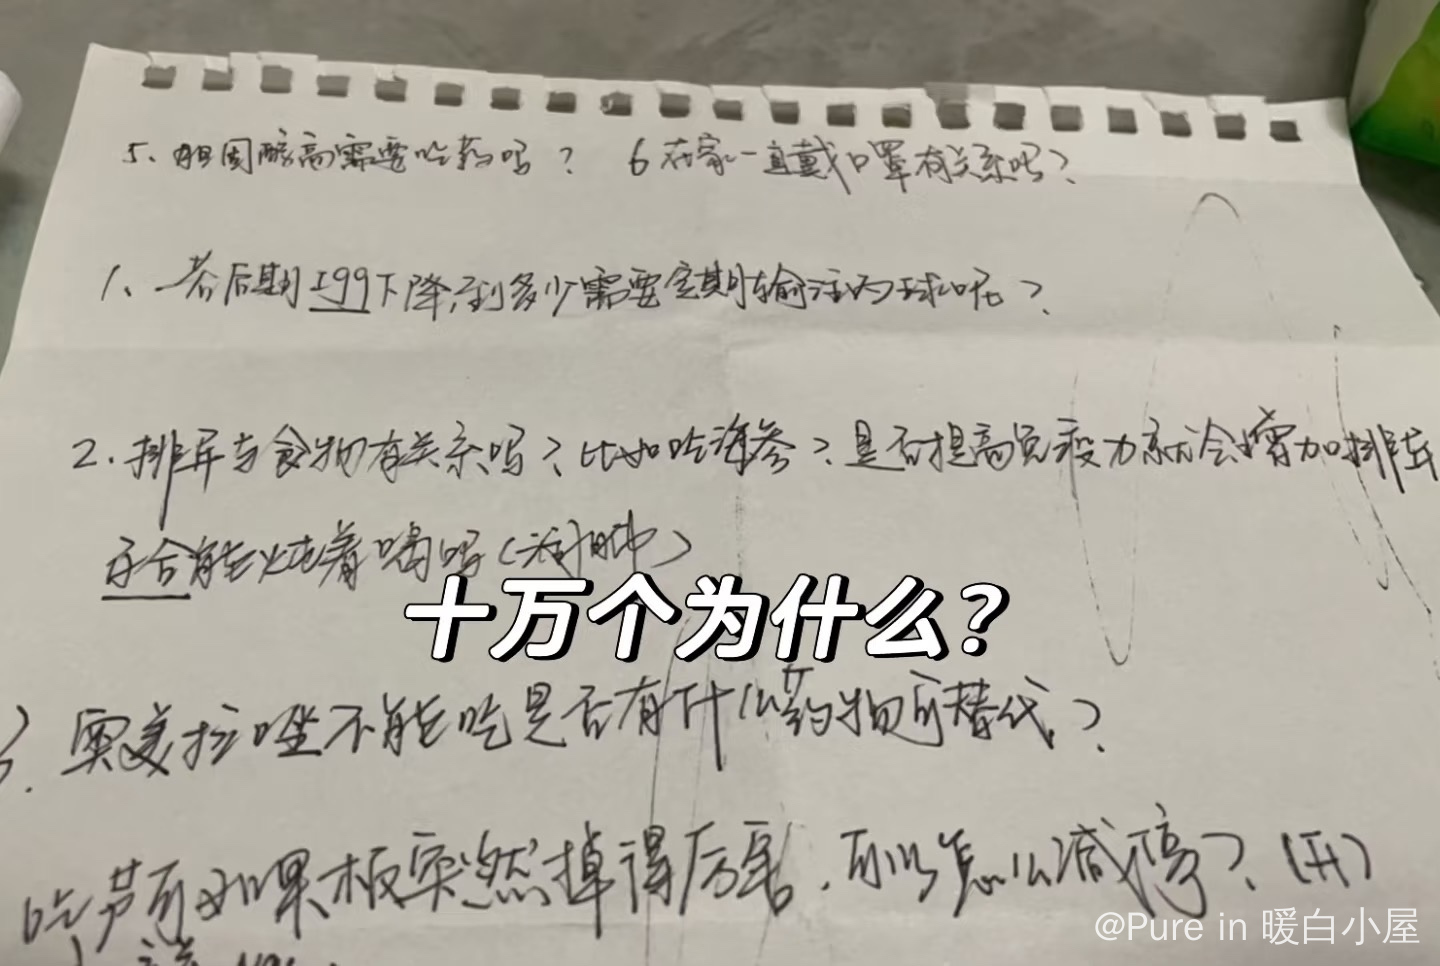 5、胆固醇高需要吃药吗? 6在家一直戴口罩有关系吗?
1、若后期199下降到多少需要定期输注丙球呢?
2.排异与食物有关系吗?比如吃海参?是否提高免疫力就会增加排异
百合能炖着喝吗(清肺)
十万个为什么?
3. 奥美拉唑不能吃是否有什么药物可替代?
吃芦可如果板突然掉得厉害,可以怎么减停?(开)
@Pure in 暖白小屋